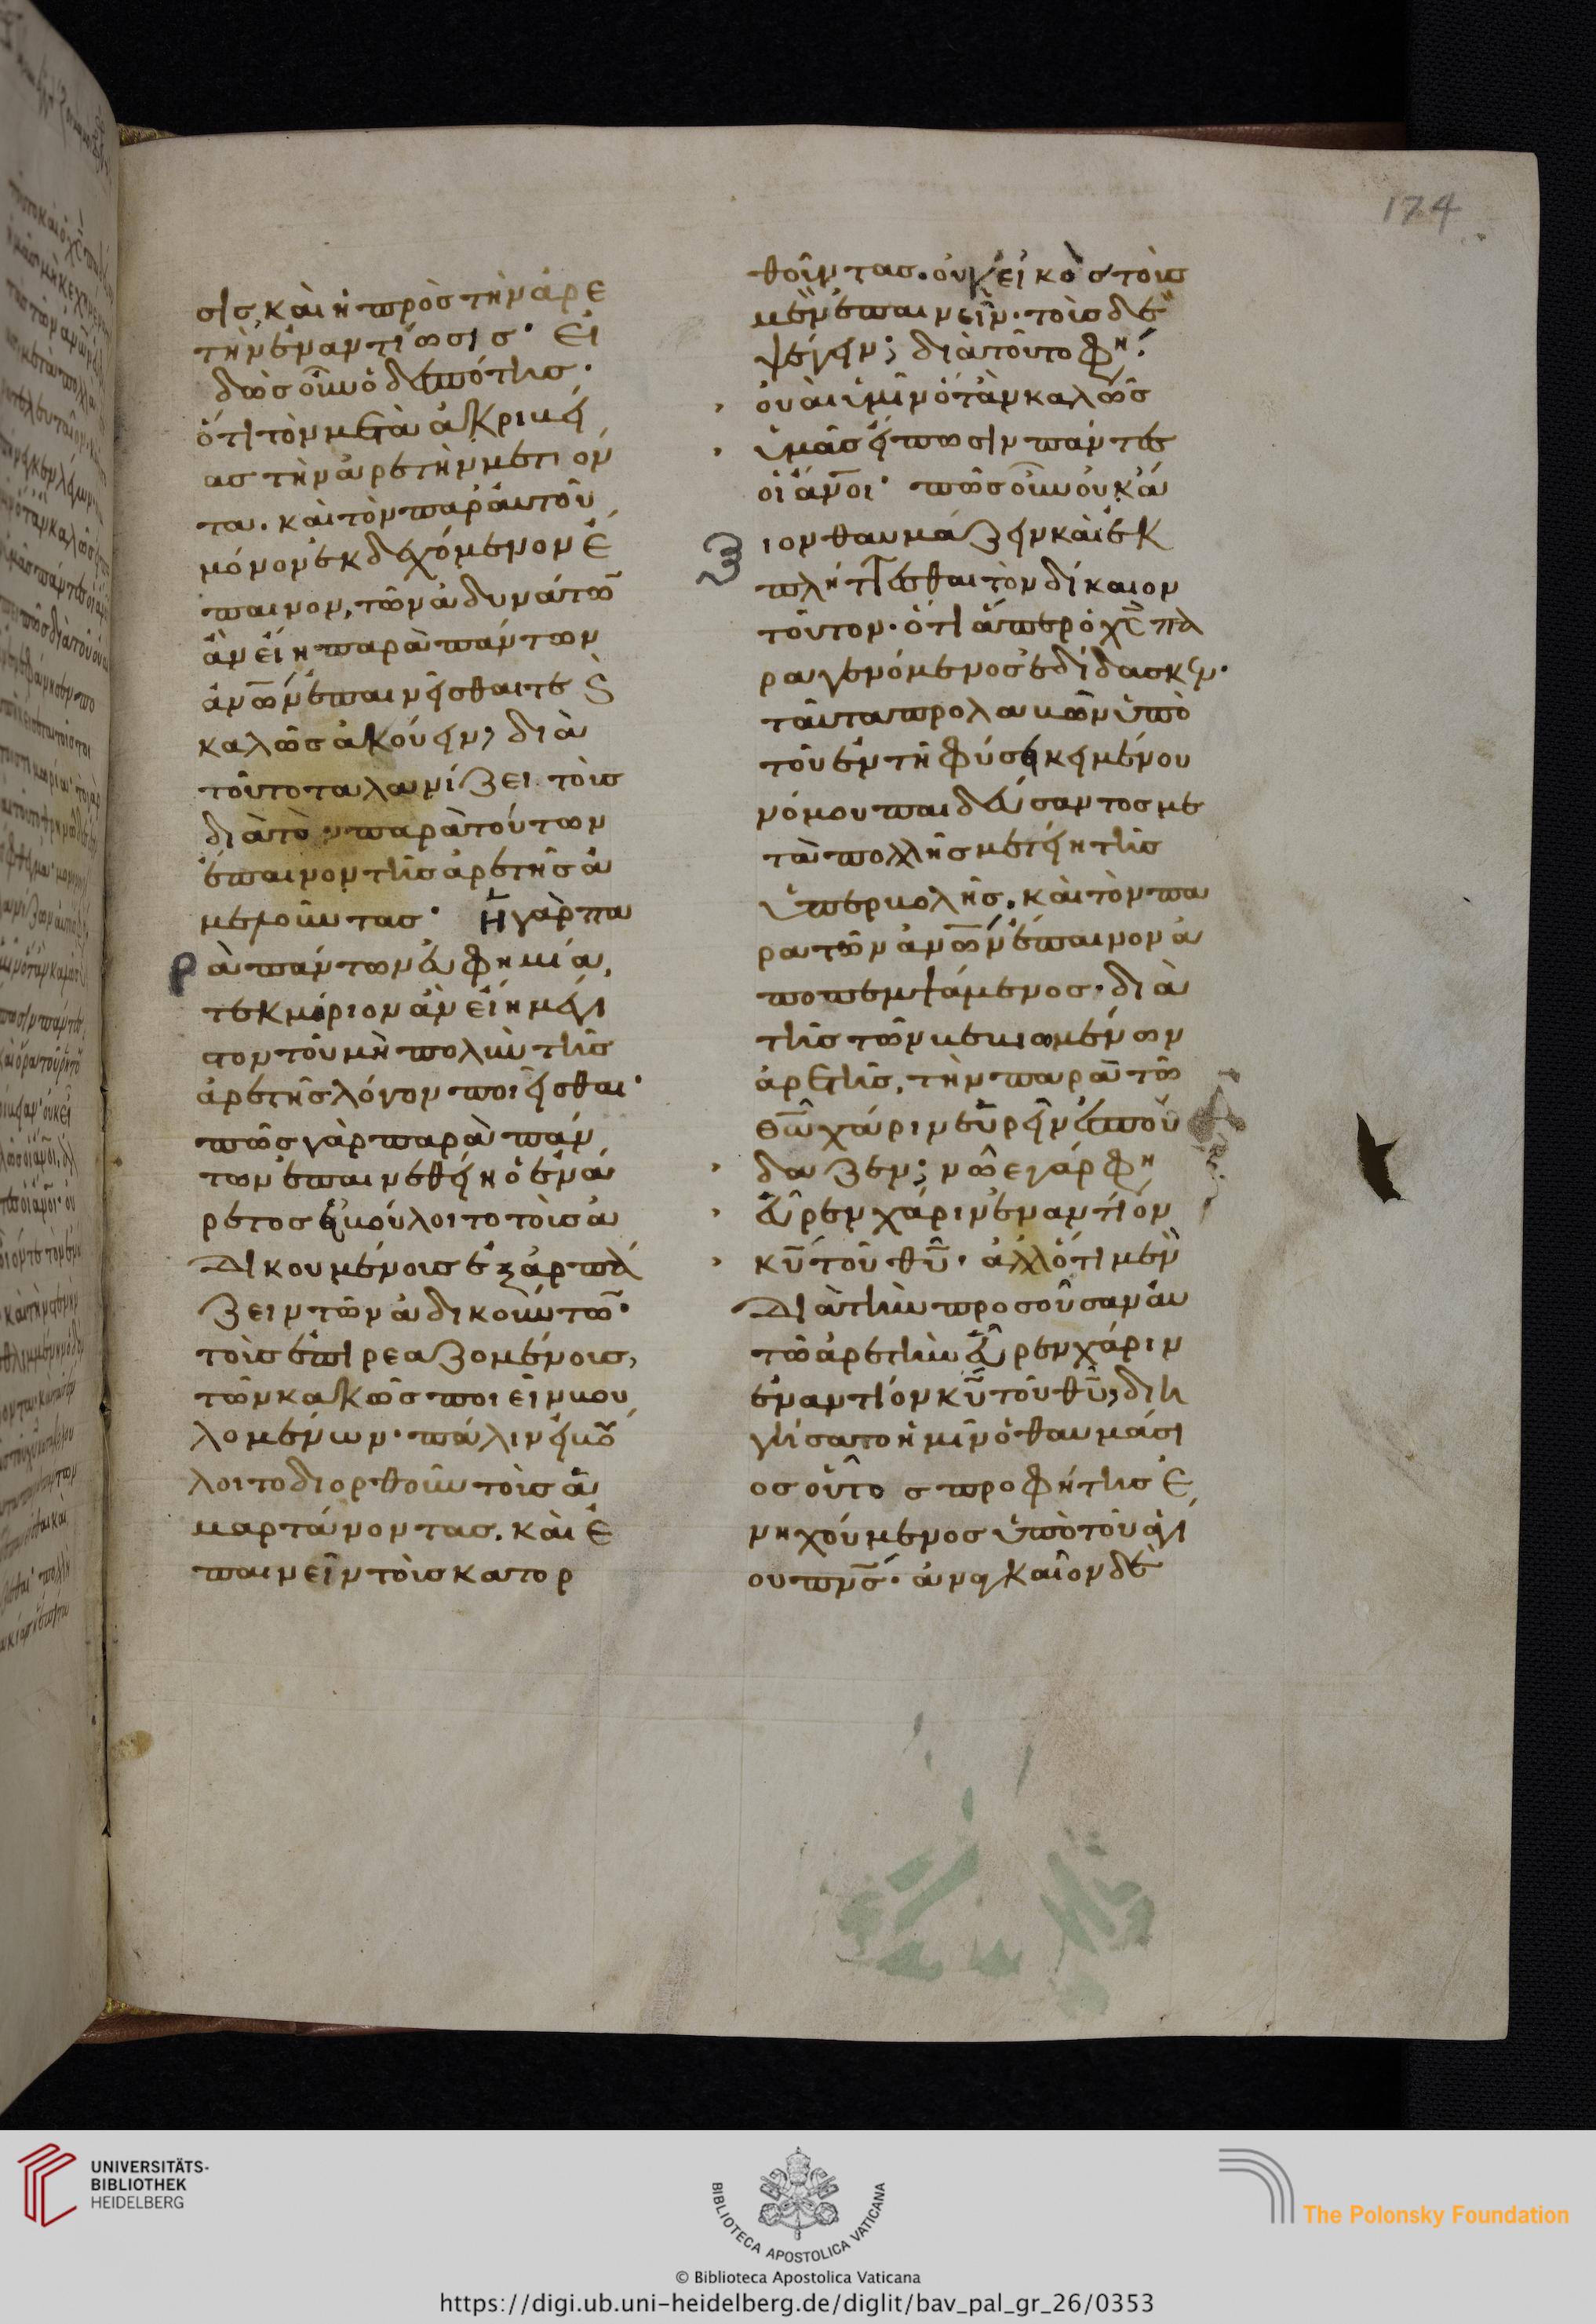 174
σις, καὶ ἡ πρὸς τὴν ἀρε
τὴν ἐναντίωσις· Εἰ
δὼς οὖν ὁ δεσπότης·
ὅτι τὸν μετὰ ἀκριβεί
ας τὴν ἀρετὴν μετιόν
τα. καὶ τὸν παρ' αὐτοῦ
μόνον ἐκδεχόμενον ἔ
παινον, τῶν ἀδυνάτω̅
ἂν εἴη παρὰ πάντων
ἀν̅ω̅ν ἐπαινεῖσθαι τε ϗ
καλῶς ἀκούειν, διὰ
τοῦτο ταλανίζει τοὺς
διὰ τὸν παρὰ τούτων
ἔπαινον τῆς ἀρετῆς ἀ
μελοῦντας· Ἡ γὰρ πα
ρὰ πάντων εὐφημία,
τεκμήριον ἂν εἴη μέγι
στον τοῦ μὴ πολὺν τῆς
ἀρετῆς λόγον ποιεῖσθαι·
πῶς γὰρ παρὰ πάν
των ἐπαινεθείη ὁ ἐνά
ρετος εἰ βούλοιτο τοὺς ἀ
δικουμένους ἐξαρπά
ζειν τῶν ἀδικούντω̅·
τοὺς ἐπιρεαζομένους,
τῶν κακῶς ποιεῖν βου
λομένων· πάλιν εἰ βού
λοιτο διορθοῦν τοὺς ἁ
μαρτάνοντας. καὶ ἐ
παινεῖν τοὺς κατορ
θοῦντας. οὐκ εἰκὸς τοὺς
μὲν ἐπαινεῖν· τοὺς δὲ
ψέγειν; διὰ τοῦτο φη·
οὐαὶ ὑμῖν ὅτ' ἂν καλῶς
ὑμᾶς εἴπωσιν πάντες
οἱ ἄν̅οι· πῶς οὖν οὐκ ἄ
ξιον θαυμάζειν καὶ ἐκ
πλήττεσθαι τὸν δίκαιον
τοῦτον· ὅτι ἅπερ ὁ χ̅ς̅ πα
ραγενόμενος ἐδίδασκεν·
ταῦτα προλαβὼν ὑπὸ
τοῦ ἐν τῇ φύσει κειμένου
νόμου παιδεύσαντος με
τὰ πολλῆς μετείη τῆς
ὑπερβολῆς. καὶ τὸν πα
ρα τῶν ἀν̅ω̅ν ἔπαινον ἀ
ποπεμψάμενος· διὰ
τῆς τῶν βεβιωμένων
ἀρετῆς, τὴν παρὰ τῶ
θ̅ω̅ χάριν εὑρεῖν ἐσπού
δαζεν; νῶε γάρ φη
εὗρεν χάριν ἐναντίον
κ̅υ̅ τοῦ θ̅υ̅· ἀλλ' ὅτι μὲν
διὰ τὴν προσοῦσαν αὐ
τῶ ἀρετὴν εὗρεν χάριν
ἐναντίον κ̅υ̅ τοῦ θ̅υ̅, διη
γήσατο ἡμῖν ὁ θαυμάσι
ος οὗτος προφήτης ἐ
νηχούμενος ὑπὸ τοῦ ἁγί
ου πν̅ς̅· ἀναγκαῖον δὲ
UNIVERSITÄTS-
BIBLIOTHEK
HEIDELBERG
BIBLIOTECA APOSTOLICA VATICANA
The Polonsky Foundation
© Biblioteca Apostolica Vaticana
https://digi.ub.uni-heidelberg.de/diglit/bav_pal_gr_26/0353